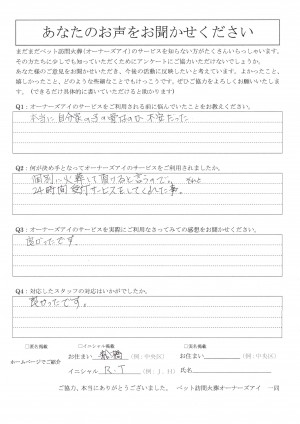 あなたのお声をお聞かせください
まだまだペット訪問火葬(オーナーズアイ)のサービスを知らない方がたくさんいらっしゃいます。
その方たちに少しでも知っていただくためにアンケートにご協力いただけないでしょうか。
あなた様のご意見をお聞かせいただき、今後の活動に反映したいと考えています。よかったこと。
嬉しかったこと。どのような些細なことでもけっこうです。ぜひご協力をよろしくお願いいたしま
す。(できるだけ具体的に書いていただけると助かります)
Q1:オーナーズアイのサービスをご利用される前に悩んでいたことをお教えください。
本当に自分家の子の骨なのか不安だった
Q2:何が決め手となってオーナーズアイのサービスをご利用されましたか。
個別に火葬して頂けると言うので。それと
24時間受付サービスをしてくれた事。
Q3:オーナーズアイのサービスを実際にご利用なさってみての感想をお聞かせください。
良かったです。
Q4:対応したスタッフの対応はいかがでしたか。
良かったです。
□匿名掲載 □イニシャル掲載 □実名掲載
ホームページでご紹介
お住まい (例:中央区) お住まい (例:中央区)
イニシャル R・T (例:J.H) 氏名
ご協力、本当にありがとうございました。 ペット訪問火葬オーナーズアイ 一同